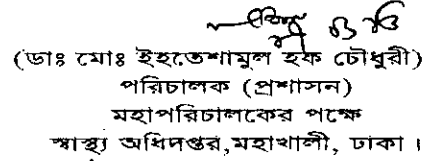 (ডাঃ মোঃ ইহতেশামুল হক চৌধুরী)
পরিচালক (প্রশাসন)
মহাপরিচালকের পক্ষে
স্বাস্থ্য অধিদপ্তর,মহাখালী, ঢাকা ।